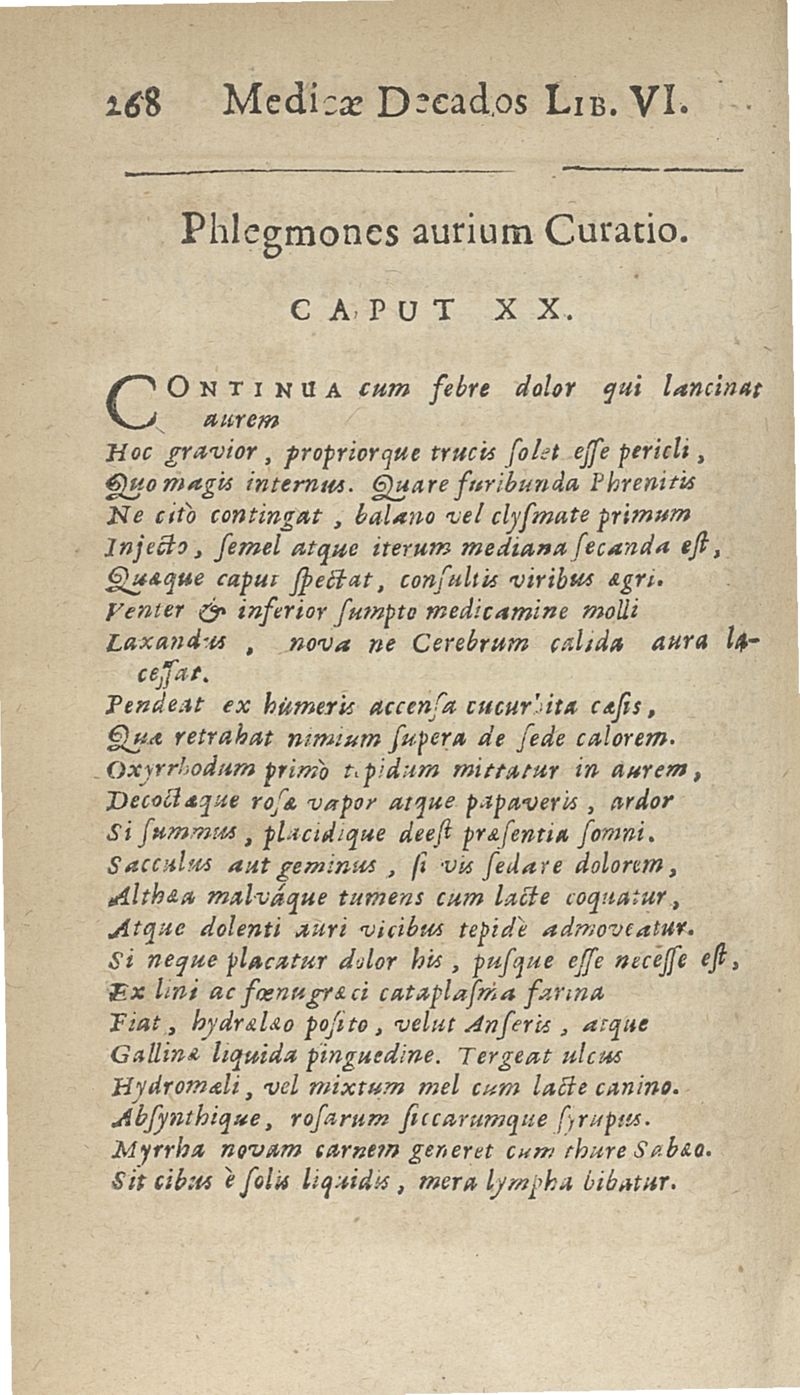 268 Medicæ Decados LIB. VI.
Phlegmones aurium Curatio.
CAPUT XX.
CONTINUA cum febre dolor qui lancinat
aurem
Hoc gravior, propriorque trucis ſolet eſſe pericli,
Quo magis internus. Quare furibunda Phrenitis
Ne citò contingat, balano vel clyſmate primum
Injecto, ſemel atque iterum mediana ſecanda eſt,
Quæque caput ſpectat, conſultis viribus ægri.
Venter & inferior ſumpto medicamine molli
Laxandus, nova ne Cerebrum calida aura la-
ceſſat.
Pendeat ex humeris accenſa cucurbita cæſis,
Quæ retrahat nimium ſupera de ſede calorem.
Oxyrrhodum primò tepidum mittatur in aurem,
Decoctæque roſæ vapor atque papaveris, ardor
Si ſummus, placidique deeſt præſentia ſomni.
Sacculus aut geminus, ſi vis ſedare dolorem,
Althæa malváque tumens cum lacte coquatur,
Atque dolenti auri vicibus tepidè admoveatur.
Si neque placatur dolor his, puſque eſſe neceſſe eſt,
Ex lini ac fœnugræci cataplaſma farina
Fiat, hydrælæo poſito, velut Anſeris, atque
Gallinæ liquida pinguedine. Tergeat ulcus
Hydromæli, vel mixtum mel cum lacte canino.
Abſynthique, roſarum ſiccarumque ſyrupus.
Myrrha novam carnem generet cum thure Sabæo.
Sit cibus è ſolis liquidis, mera lympha bibatur.